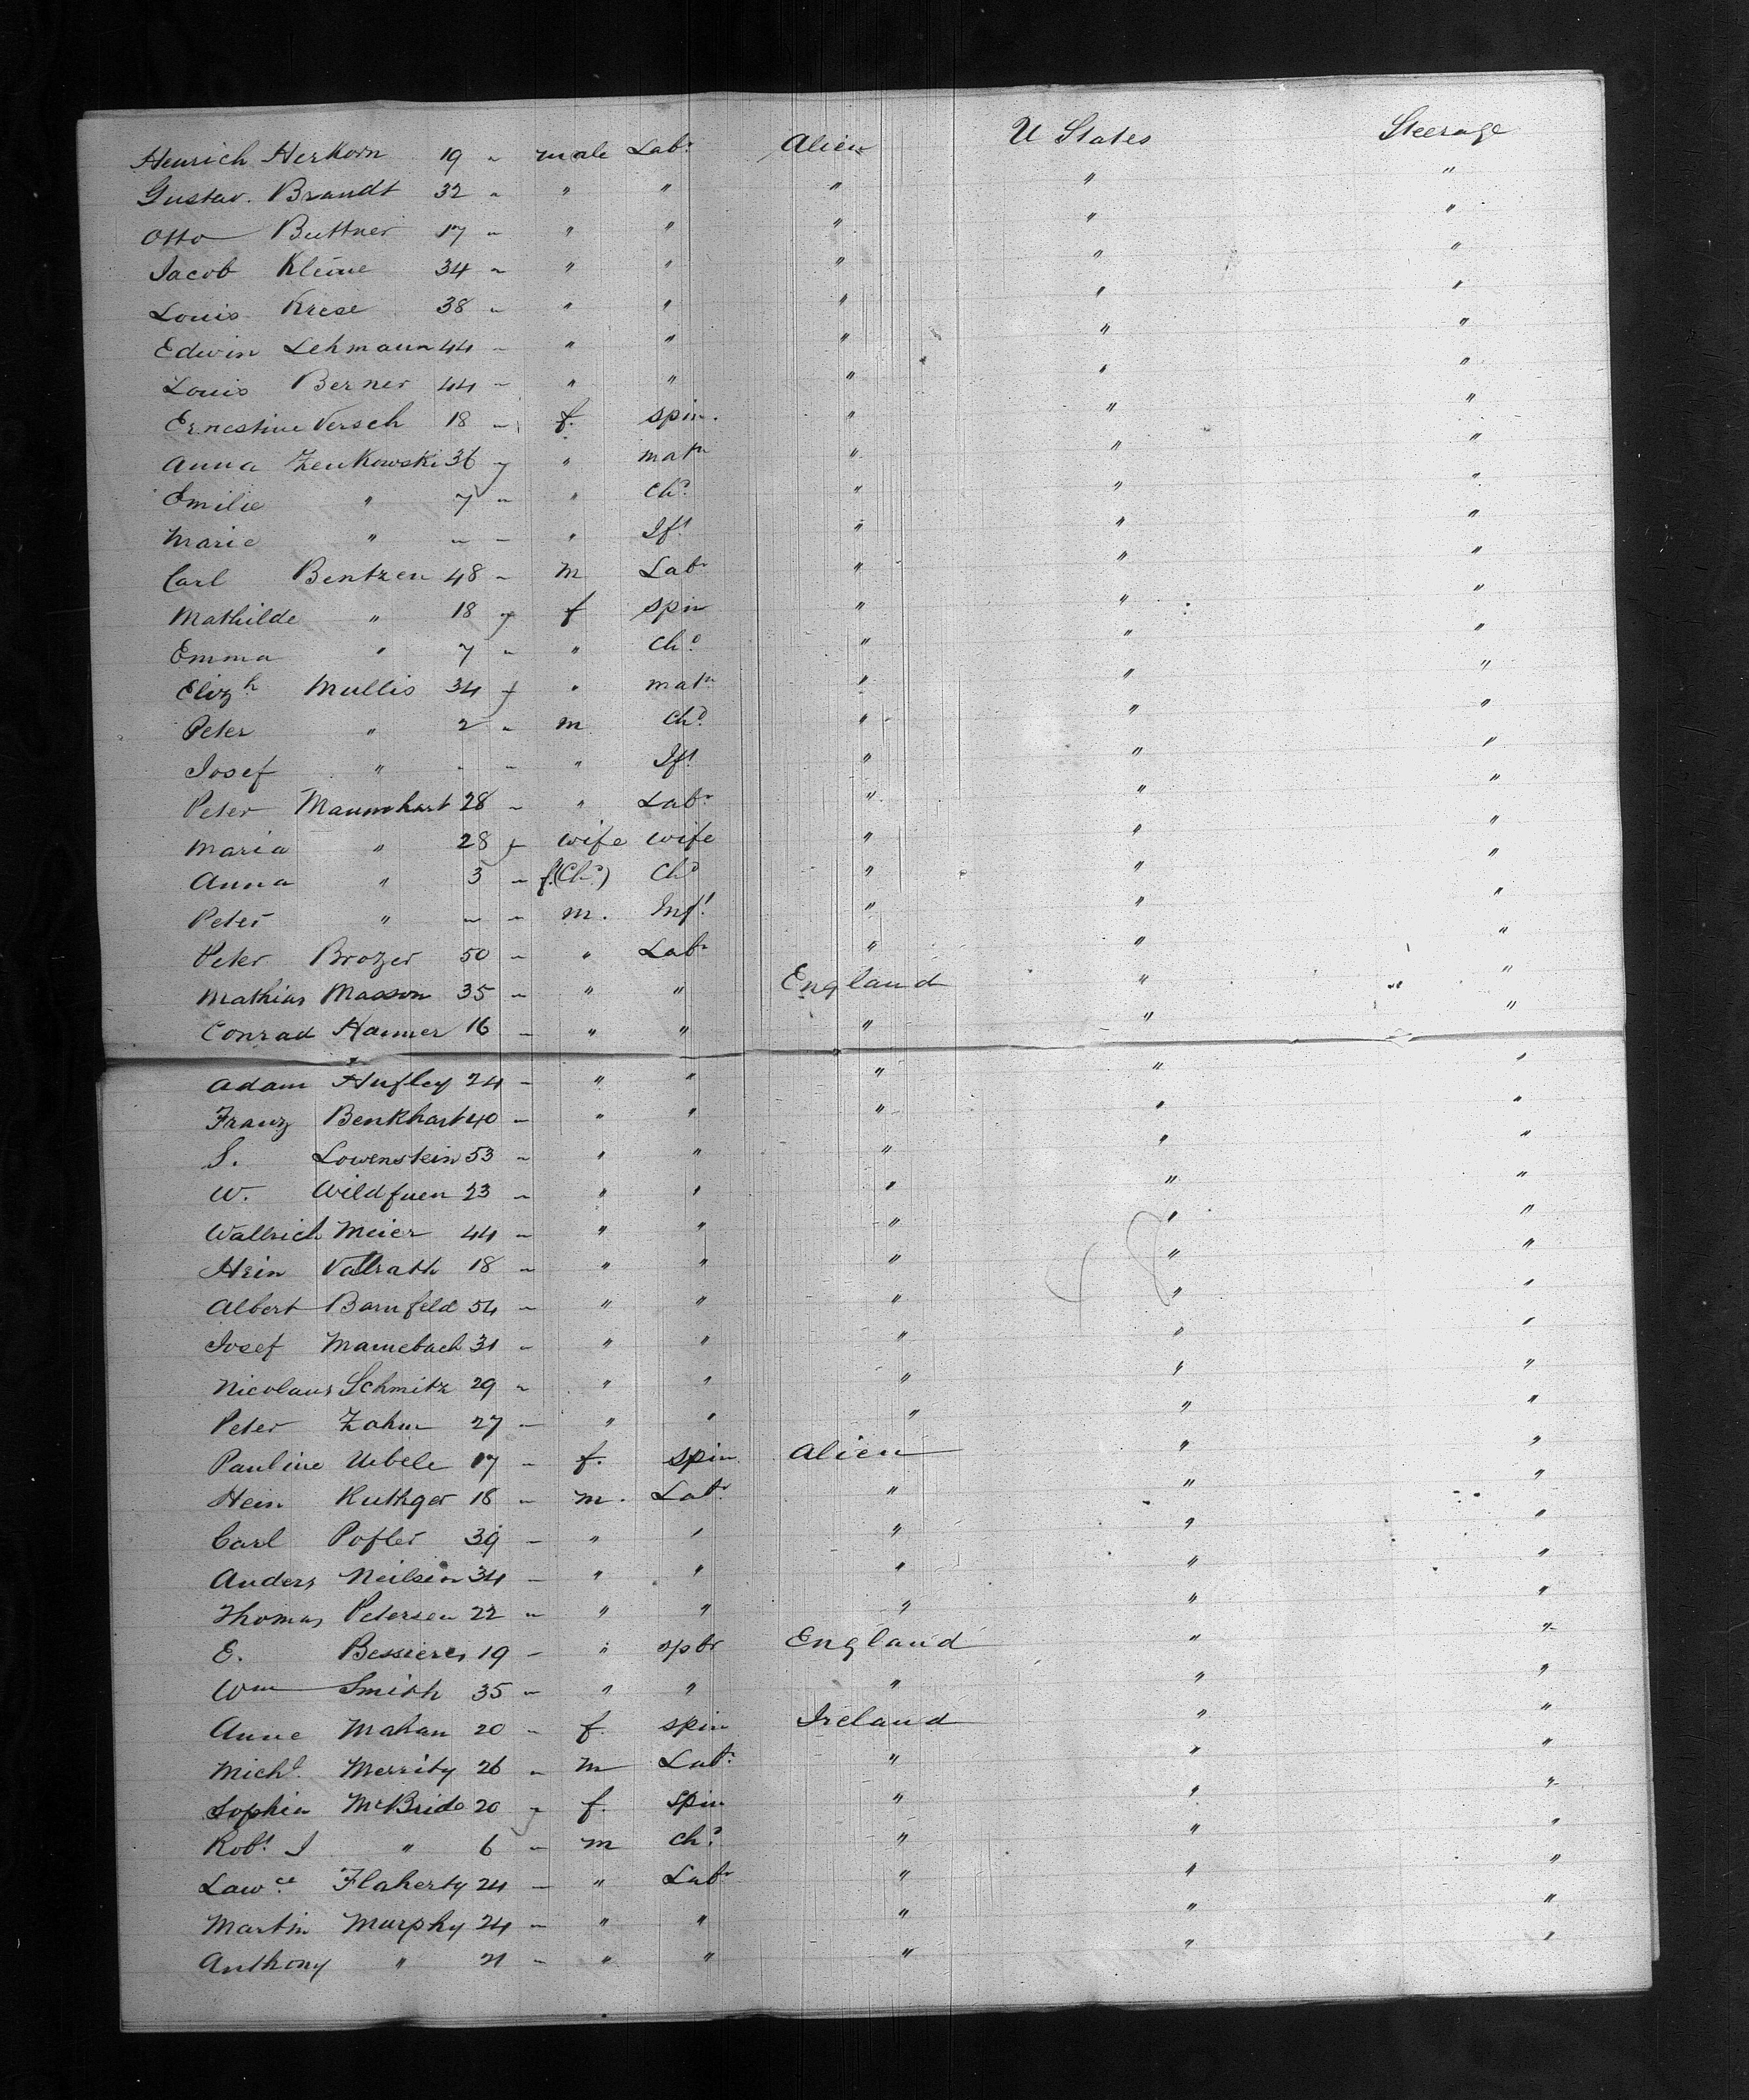 Heinrich Herkorn 19 " male Labr Alien U States Steerage
Gustav. Brandt 32 " " " " " "
Otto Buttner 17 " " " " " "
Jacob Kleine 34 " " " " " "
Louis Krese 38 " " " " " "
Edwin Lehmann 44 " " " " " "
Louis Berner 44 " " " " " "
Ernestine Versch 18 " f. spin. " " "
Anna Zenkowski 36 y " matn " " "
Emilie " 7 " " Chd " " "
Marie " " " " Ift " " "
Carl Bentzen 48 " m Labr " " "
Mathilde " 18 y f spin " " "
Emma " 7 " " Chd " " "
Elizh Mullis 34 y " matn " " "
Peter " 2 " m Chd " " "
Josef " " " " Ift " " "
Peter Maumhart 28 " " Labr " " "
Maria " 28 y wife wife " " "
Anna " 3 " f.(Chd) Chd " " "
Peter " " " m. Inft " " "
Peter Brozer 50 " " Labr " " "
Mathias Masson 35 " " " England " "
Conrad Hammer 16 " " " " " "
Adam Hufley 24 " " " " " "
Franz Benkhart 40 " " " " " "
S. Lowenstein 53 " " " " " "
W. Wildfuen 23 " " " " " "
Wallrich Meier 44 " " " " " "
Hein Vallrath 18 " " " " " "
Albert Barnfeld 54 " " " " " "
Josef Mamebach 31 " " " " " "
Nicolaus Schmitz 29 " " " " " "
Peter Zahm 27 " " " " " "
Pauline Uebele 17 " f. spin Alien " "
Hein Ruthger 18 " m. Labr " " "
Carl Pofler 39 " " " " " "
Anders Neilsen 34 " " " " " "
Thomas Petersen 22 " " " " " "
E. Bessieres 19 " " spbr England " "
Wm Smith 35 " " " " " "
Anne Mahan 20 " f. spin Ireland " "
Michl Merrity 26 " m Labr " " "
Sophia McBride 20 y f. spin " " "
Robt J " 6 " m Chd " " "
Lawce Flaherty 24 " " Labr " " "
Martin Murphy 24 " " " " " "
Anthony " 21 " " " " " "